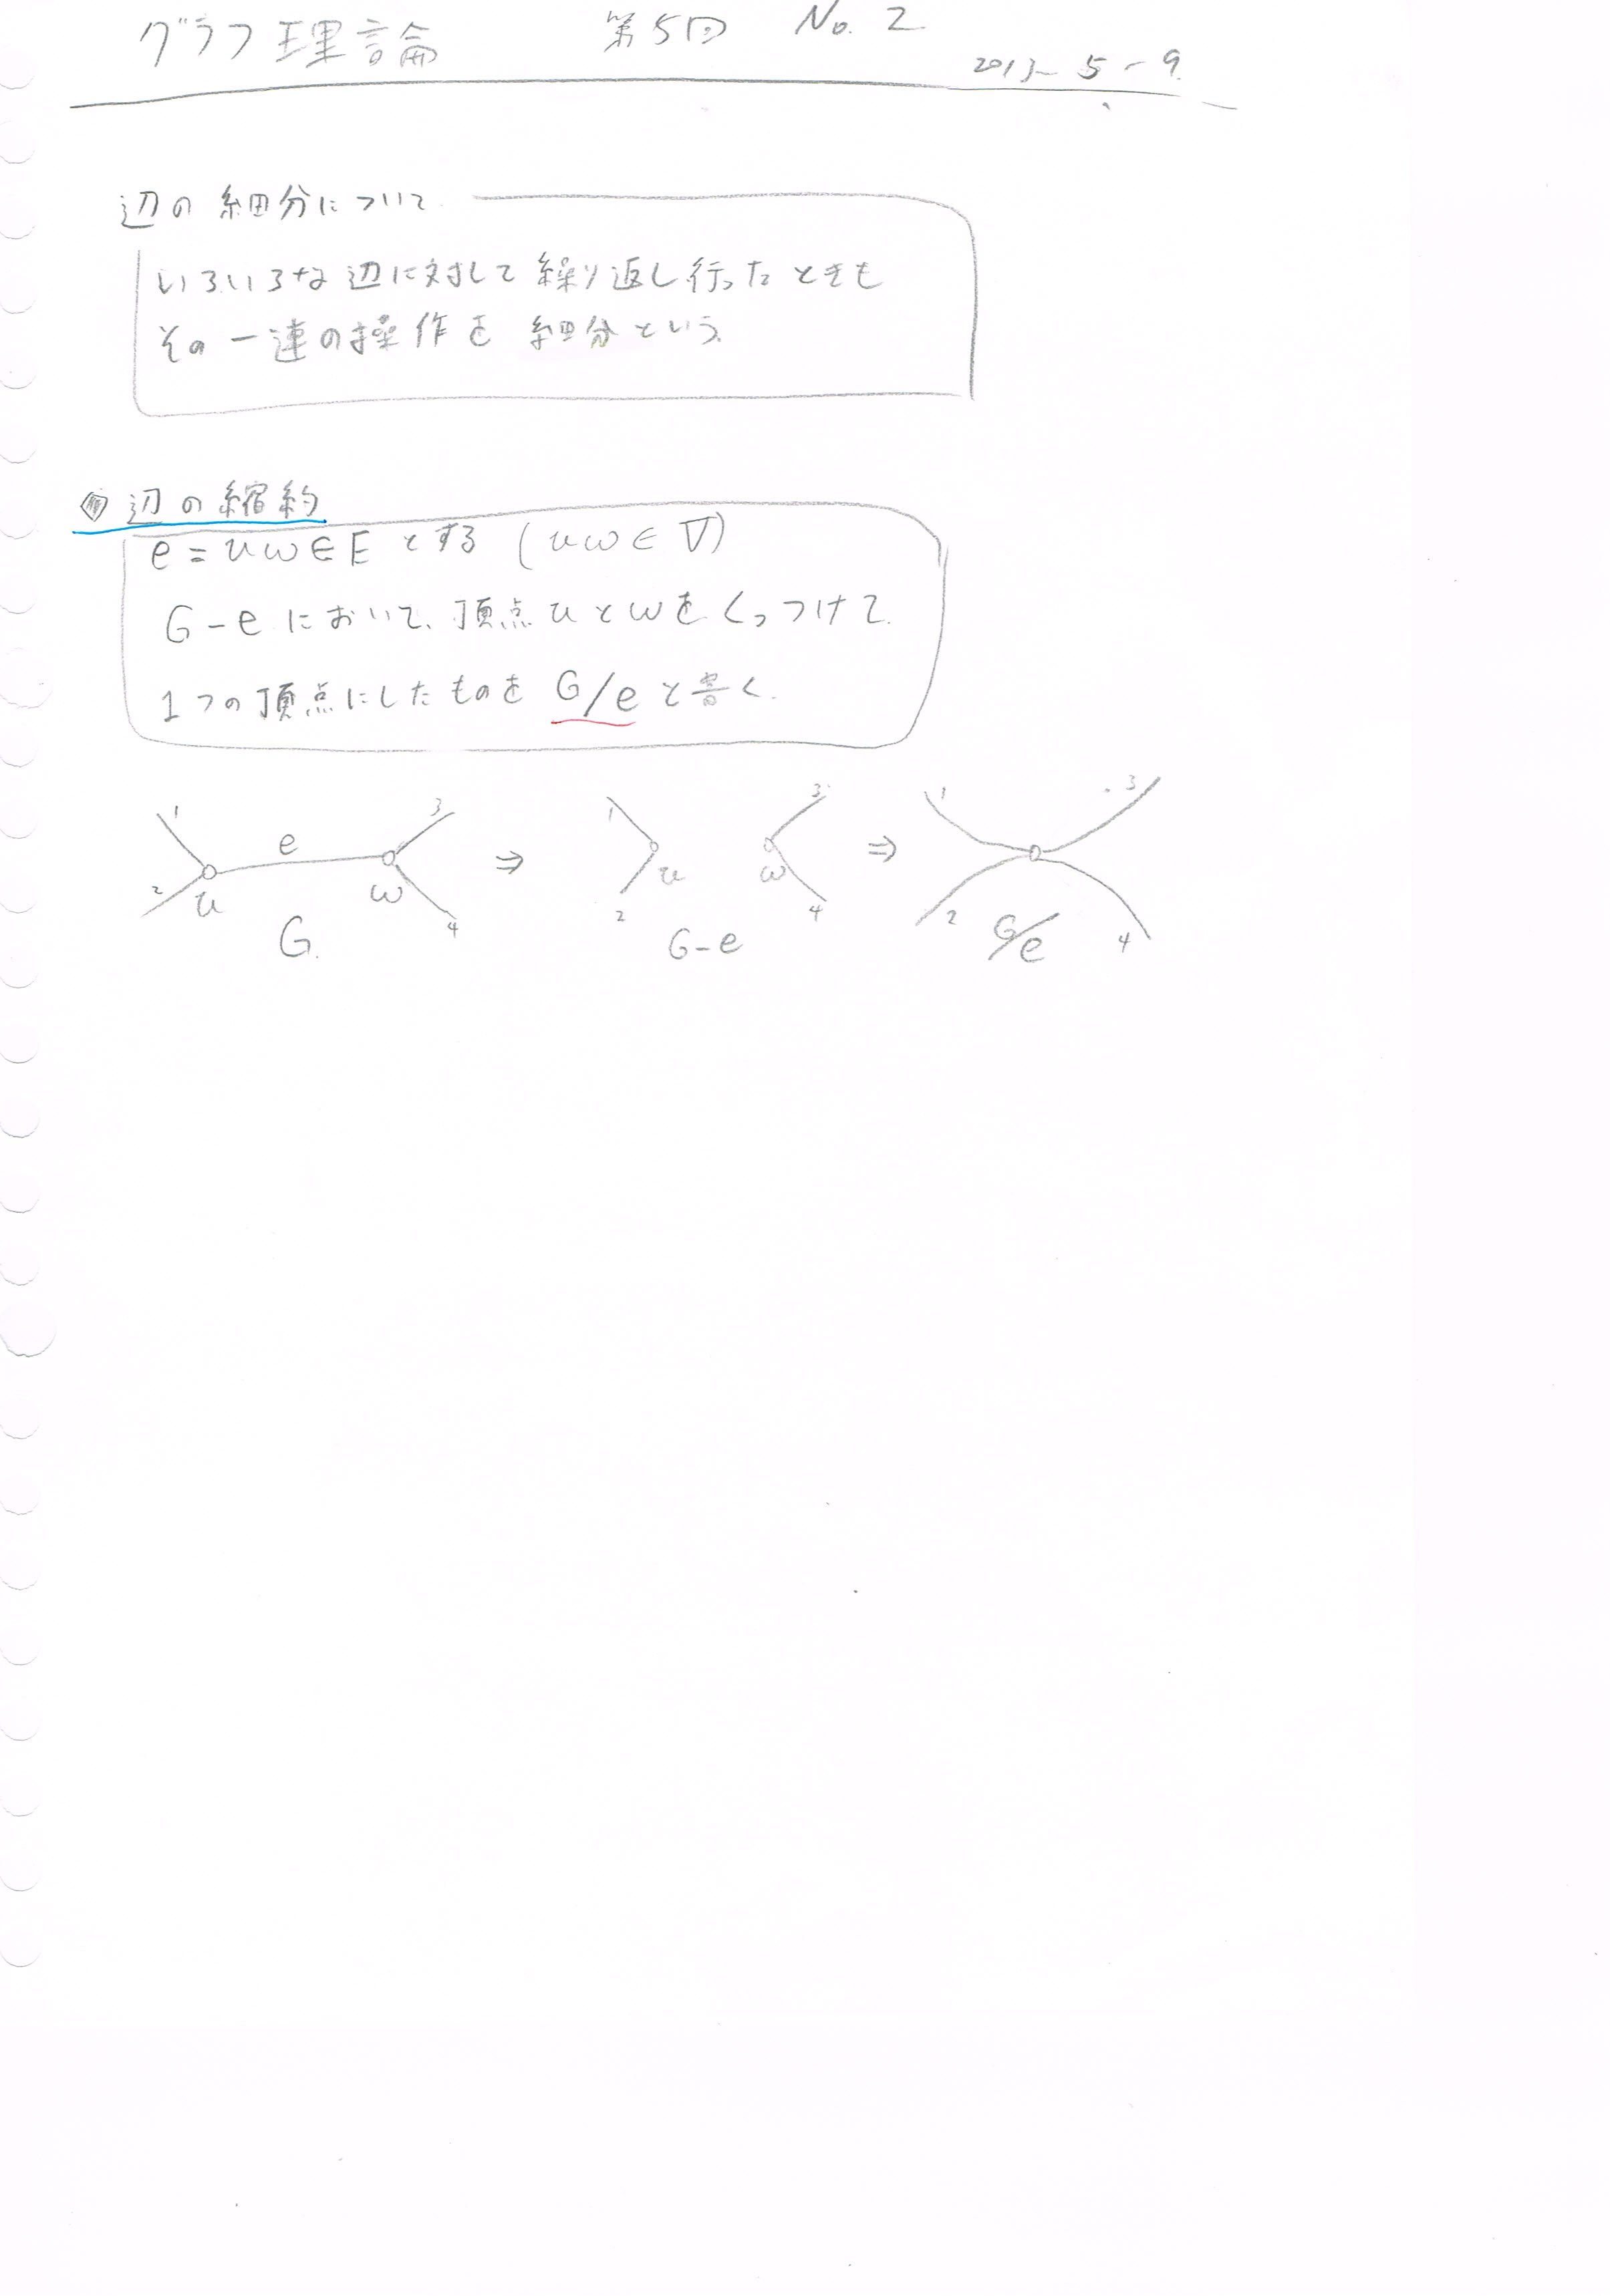 グラフ理論 第5回 No. 2
2013-5-9.
辺の細分について
いろいろな辺に対して繰り返し行ったときも
その一連の操作を細分という.
辺の縮約
e = uw ∈ E とする (uw ∈ V)
G-e において、頂点uとwをくっつけて
1つの頂点にしたものを G/e と書く.
1 2 u e w 3 4 ⇒ 1 2 u w 3 4 ⇒ 1 2 3 4
G. G-e G/e